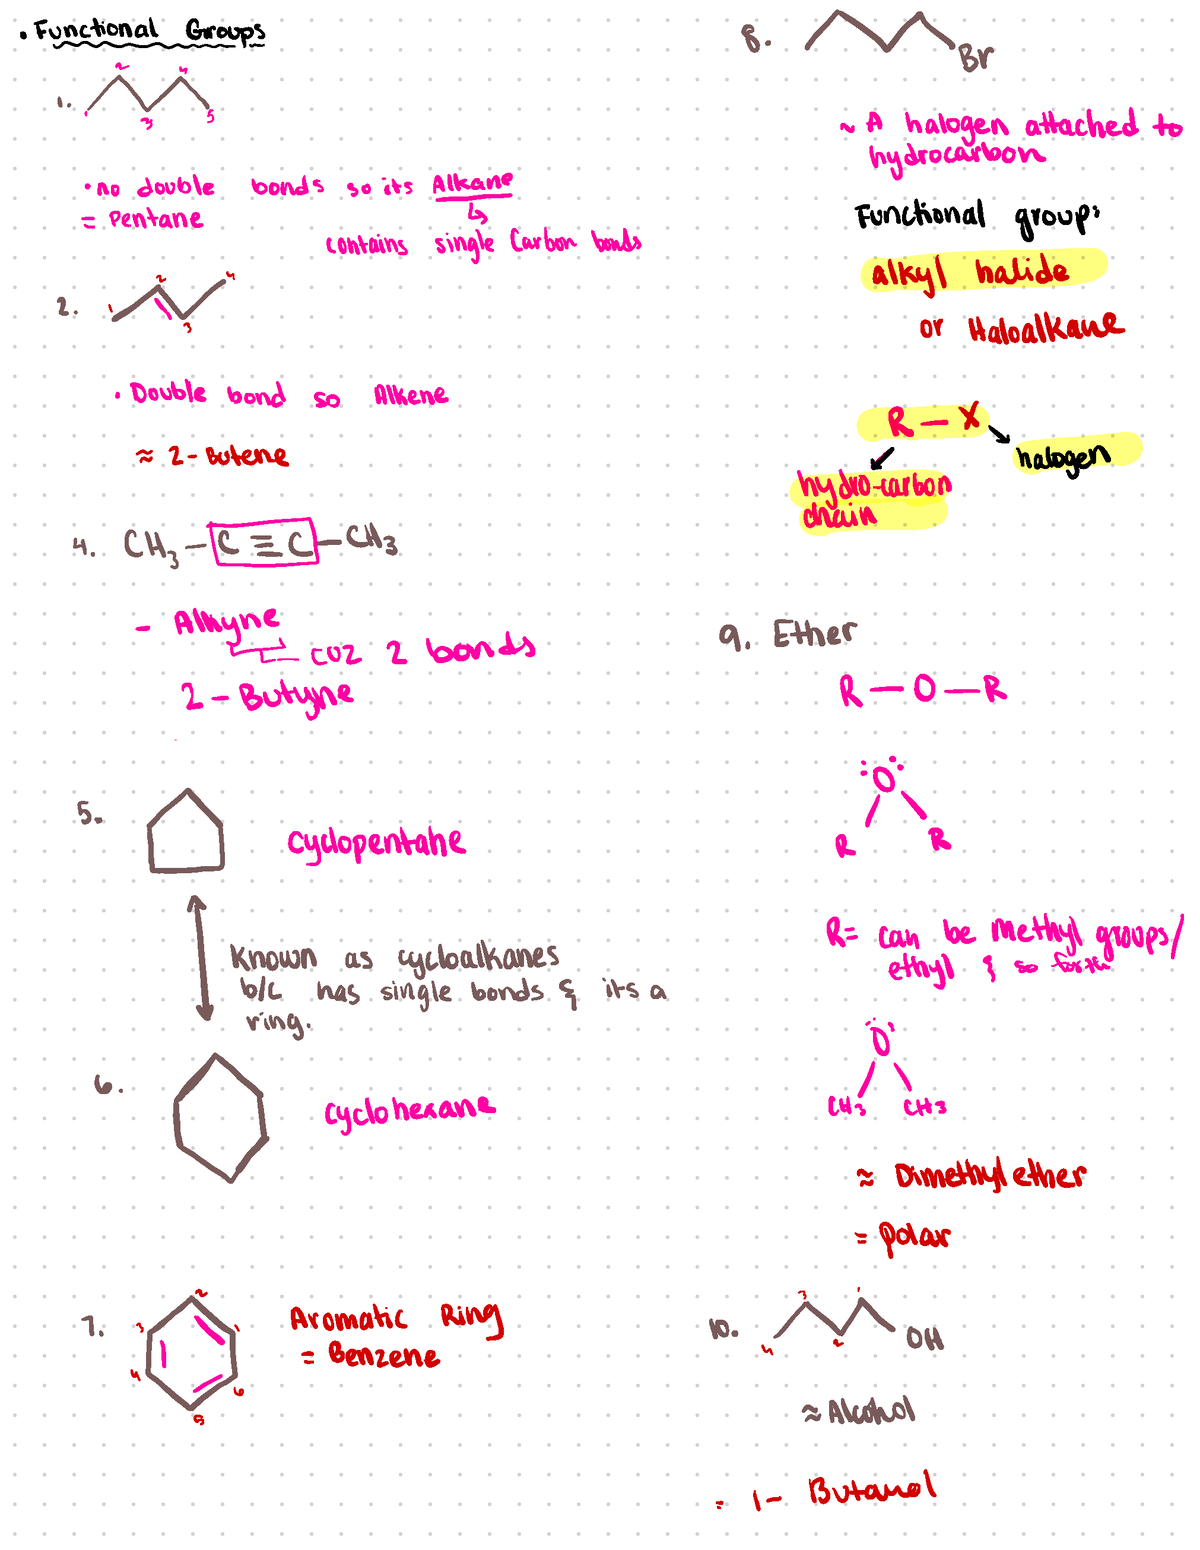 • Functional Groups
1.
1 2 3 4 5
• no double bonds so its Alkane
= Pentane
contains single Carbon bonds
2.
1 2 3 4
• Double bond so Alkene
≈ 2-Butene
4. CH3 - C ≡ C - CH3
- Alkyne
cuz 2 bonds
2 - Butyne
5.
cyclopentane
Known as cycloalkanes
b/c has single bonds & its a
ring.
6.
cyclohexane
7.
1 2 3 4 5 6
Aromatic Ring
= Benzene
8.
Br
~ A halogen attached to
hydrocarbon
Functional group:
alkyl halide
or Haloalkane
R - X
halogen
hydro-carbon
chain
9. Ether
R - O - R
:O:
R R
R = can be Methyl groups/
ethyl & so forth
O
CH3 CH3
≈ Dimethyl ether
= polar
10.
4 3 2 1
OH
≈ Alcohol
= 1- Butanol